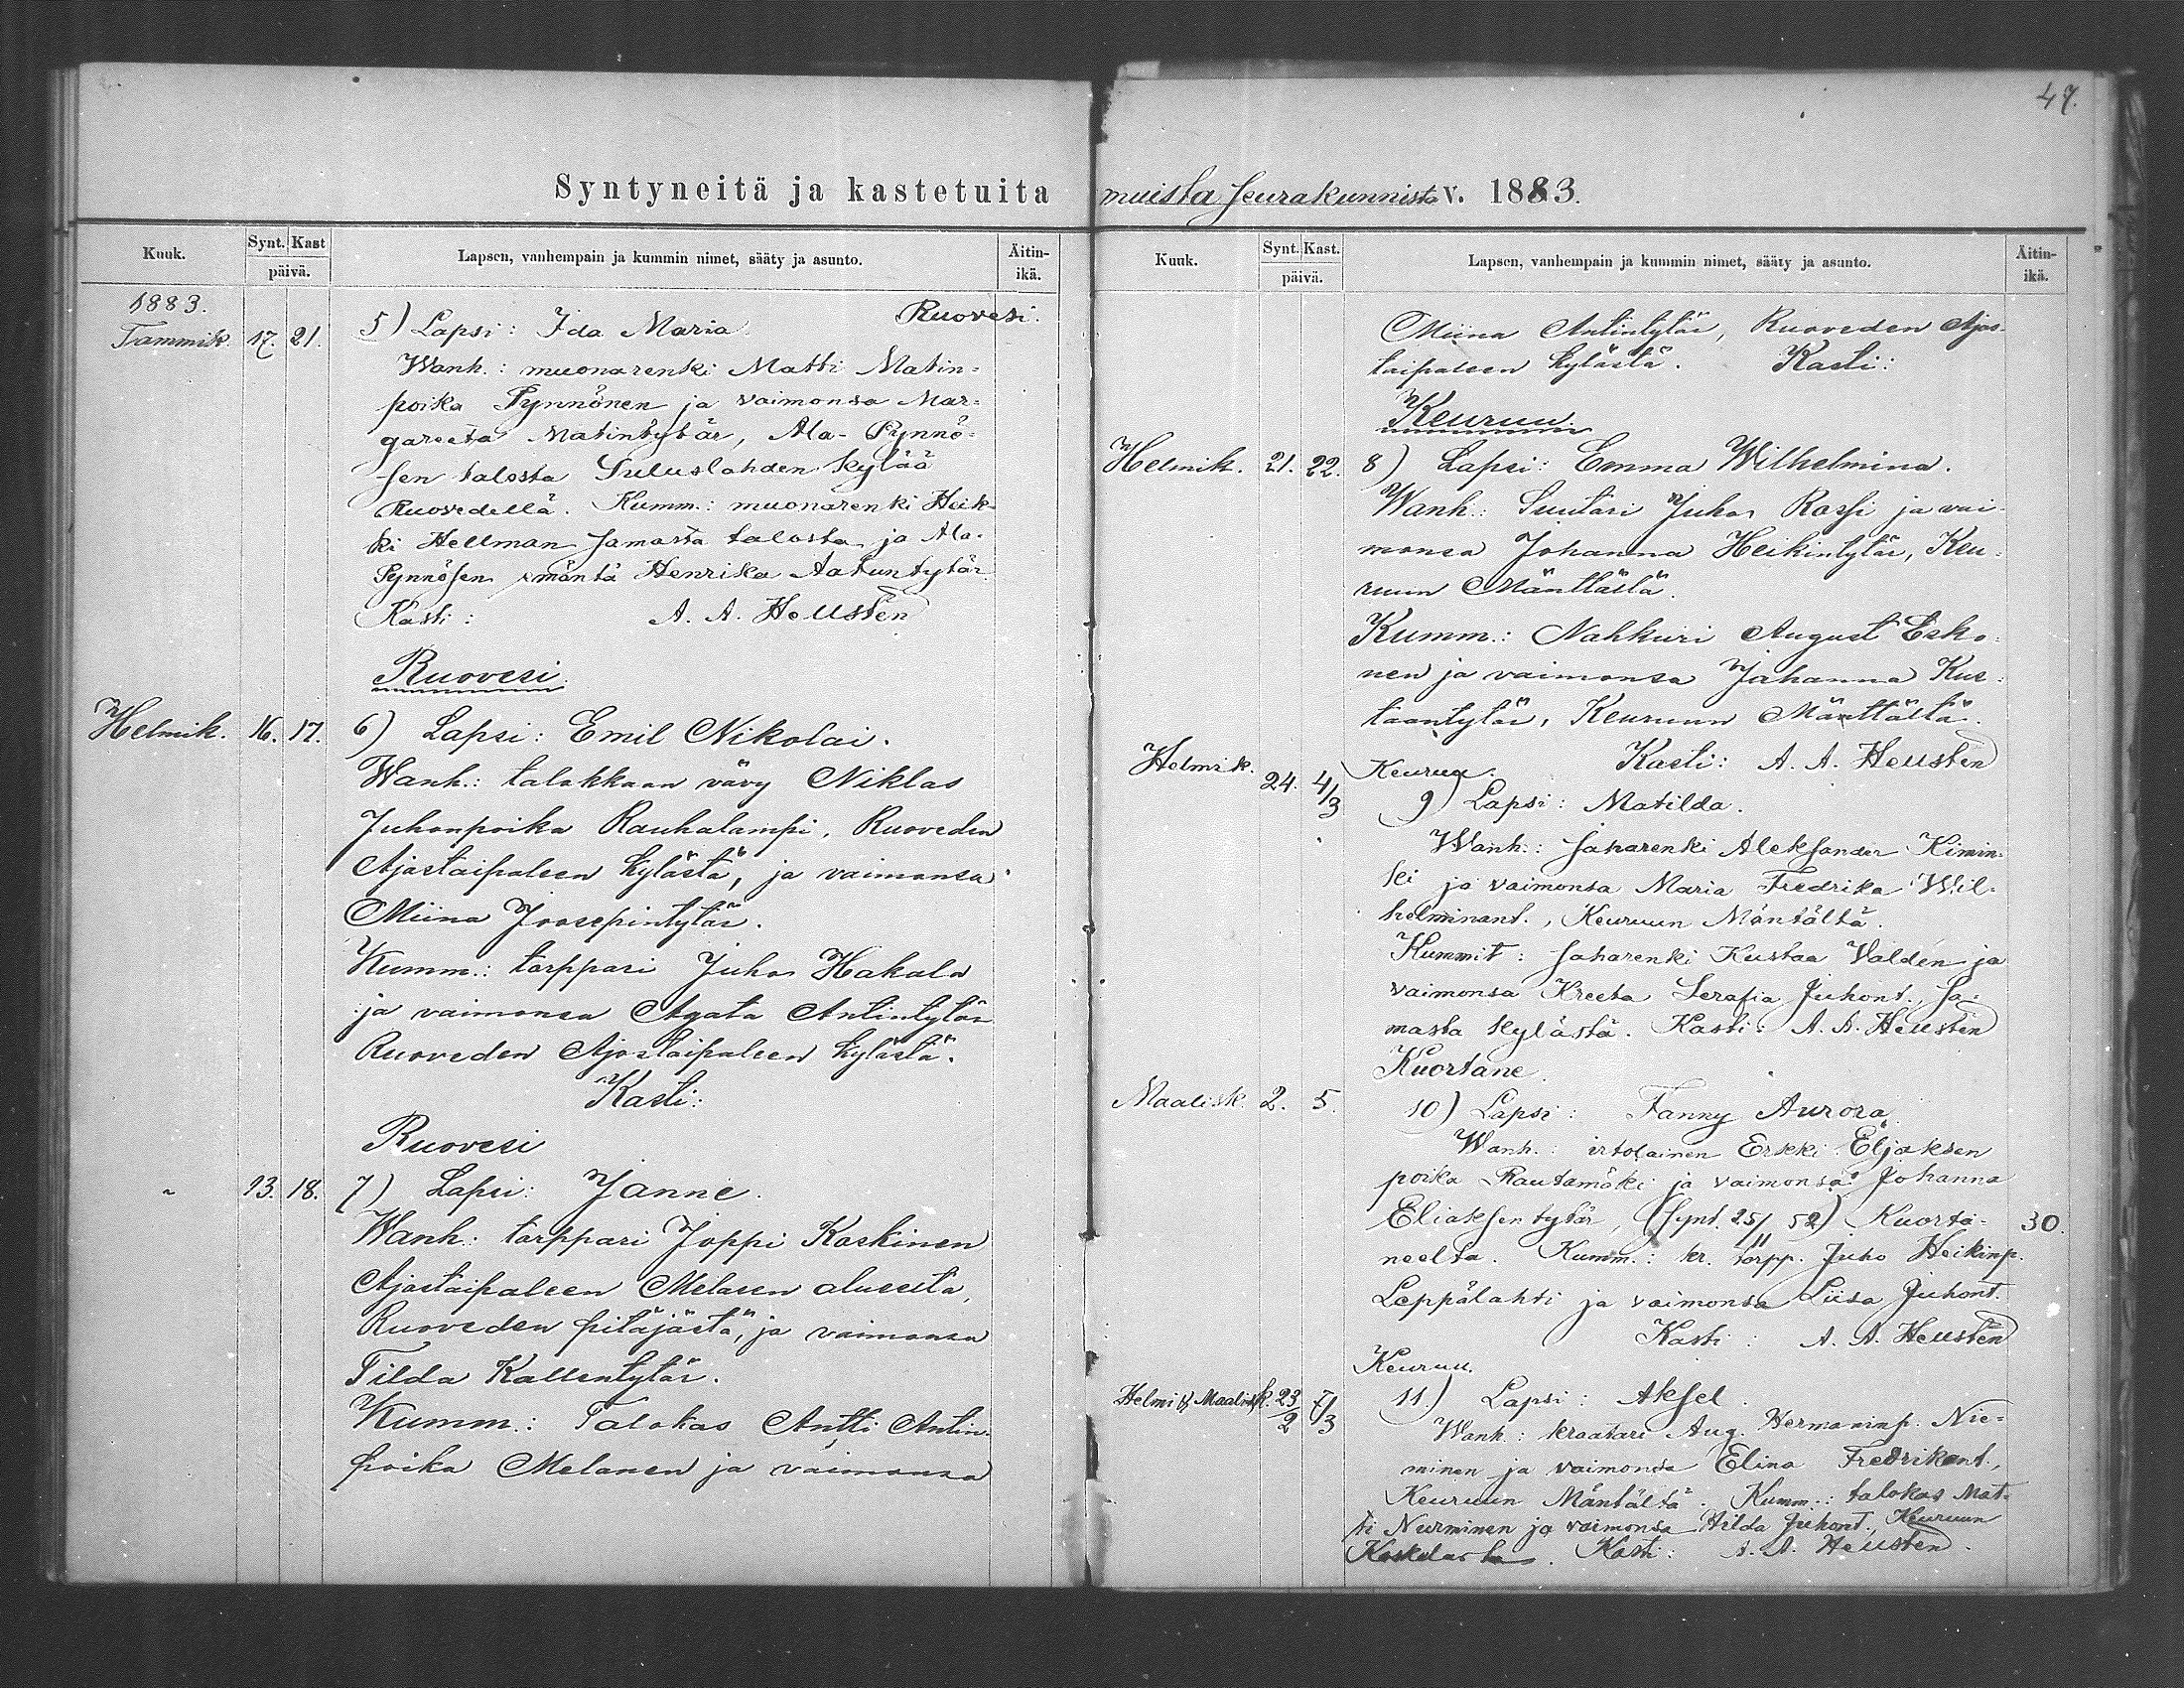 47.
Syntyneitä ja kastetuita muista seurakunnista v. 1883.
Kuuk. Synt. Kast päivä. Lapsen, vanhempain ja kummin nimet, sääty ja asunto. Äitin-ikä.
1883. Ruovesi.
Tammik. 17. 21. 5) Lapsi: Ida Maria
Wanh.: muonarenki Matti Matin-
poika Pynnönen ja vaimonsa Mar-
gareeta Matintytär, Ala-Pynnö-
sen talosta Suluslahden kylää
Ruovedellä. Kumm.: muonarenki Heik-
ki Hellman samasta talosta ja Ala-
Pynnösen emäntä Henrika Aatuntytär.
Kasti: A. A. Hellstén
Ruovesi.
Helmik. 16. 17. 6) Lapsi: Emil Nikolai.
Wanh.: talokkaan vävy Niklas
Juhonpoika Rauhalampi, Ruoveden
Ajostaipaleen kylästä, ja vaimonsa
Miina Joosepintytär.
Kumm.: torppari Juho Hakala
ja vaimonsa Agata Antintytär
Ruoveden Ajostaipaleen kylästä.
Kasti:
Ruovesi
" 13. 18. 7) Lapsi: Janne.
Wanh.: torppari Joppi Koskinen
Ajostaipaleen Melasen alueelta,
Ruoveden pitäjästä, ja vaimonsa
Tilda Kallentytär.
Kumm.: Talokas Antti Antin-
poika Melanen ja vaimonsa
Kuuk. Synt. Kast. päivä. Lapsen, vanhempain ja kummin nimet, sääty ja asunto. Äitin-ikä.
Miina Antintytär, Ruoveden Ajos-
taipaleen kylästä. Kasti:
Keuruu.
Helmik. 21. 22. 8) Lapsi: Emma Wilhelmina.
Wanh.: Suutari Juho Rossi ja vai-
monsa Johanna Heikintytär, Keu-
ruun Mänttältä.
Kumm.: Nahkuri August Esko-
nen ja vaimonsa Johanna Kus-
taantytär, Keuruun Mänttältä.
Kasti: A. A. Hellstén
Helmik. 24. 4/3 Keuruu.
9) Lapsi: Matilda.
Wanh.: saharenki Aleksander Kimin-
ki ja vaimonsa Maria Fredrika Wil-
helminant., Keuruun Mäntältä.
Kummit: saharenki Kustaa Valdén ja
vaimonsa Kreeta Serafia Juhont., sa-
masta kylästä. Kasti: A. A. Hellstén
Kuortane.
Maalisk. 2. 5. 10) Lapsi: Fanny Aurora
Wanh.: irtolainen Erkki Eljaksen
poika Rautamäki ja vaimonsa Johanna
Eliaksentytär, (synt. 25/11 52) Kuorta- 30.
neelta. Kumm.: kr. torpp. Juho Heikinp.
Leppälahti ja vaimonsa Liisa Juhont.
Kasti: A. A. Hellstén
Keuruu.
Helmi & Maalisk. 23/2 7/3 11) Lapsi: Aksel.
Wanh.: kraatari Aug. Hermaninp. Nie-
minen ja vaimonsa Elina Fredrikant.,
Keuruun Mäntältä. Kumm.: talokas Mat-
ti Nurminen ja vaimonsa Hilda Juhont., Keuruun
Koskelasta. Kasti: A. A. Hellstén.